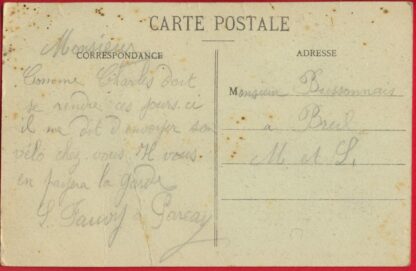 CARTE POSTALE
CORRESPONDANCE
Monsieur
Comme Charles doit
se rendre ces jours ci
il ma dit d'envoyer son
vélo chez vous. Il vous
en payera la garde
ADRESSE
Monsieur Bussonnais
à Breil
M et L.